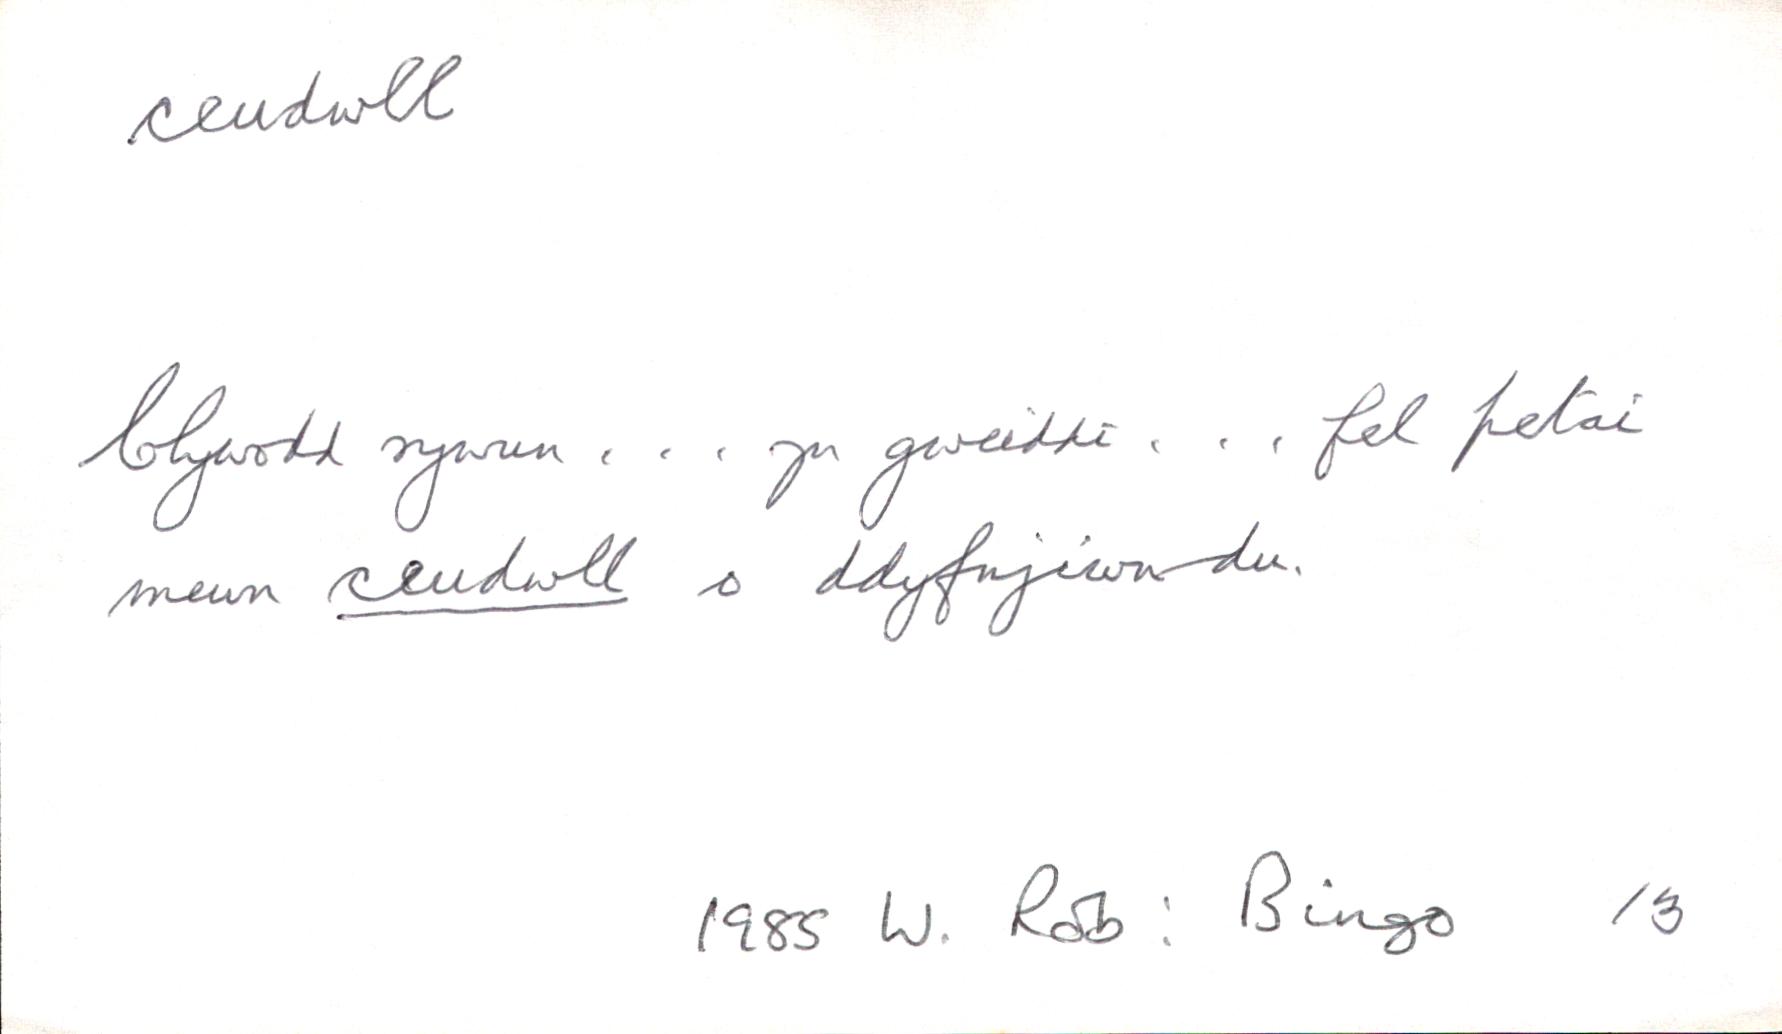 ceudwll
Clywodd rywun . . . yn gweiddi . . . fel petai
mewn ceudwll o ddyfnjiwn du.
1985 W. Rob: Bingo 13